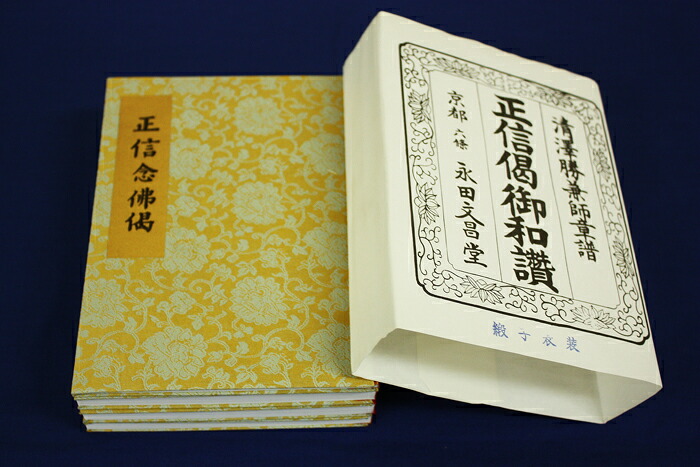 正信念佛偈
清澤勝兼師章譜
正信偈御和讃
京都 六條 永田文昌堂
緞子衣装